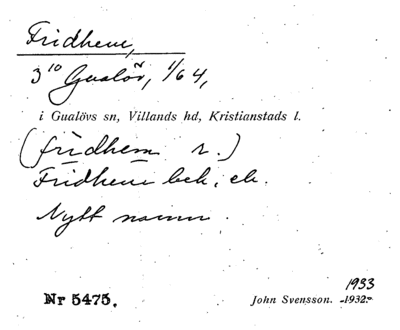 Fridhem,
3¹⁰ Gualöv, 1/64,
i Gualövs sn, Villands hd, Kristianstads l.
(frìdhem r.)
Fridhem bek. ek.
Nytt namn.
1933
Nr 5475. John Svensson. 1932.